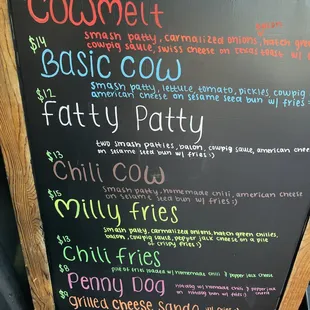 COWMelt
smash patty, carmalized onions, hatch green
cowpig sauce, swiss cheese on texas toast w/
$14
Basic COW
smash patty, lettuce, tomato, pickles, cowpig
american cheese on sesame seed bun w/ fries
$12
Fatty Patty
two smash patties, bacon, cowpig sauce, american chees
on sesame seed bun w/ fries :)
$13
Chili COW
smash patty, homemade chili, american cheese
on sesame seed bun w/ fries :)
$15
Milly fries
smash patty, carmalized onions, hatch green chilies,
bacon, cowpig sauce, pepper jack cheese on a pile
of crispy fries :)
$13
Chili fries
pile of fries loaded w/ homemade chili & pepper jack cheese
$8
Penny DOG
hotdog w/ homemade chili & pepper jack
on hotdog bun w/ fries :)
$9
grilled cheese sando w/ fries :)